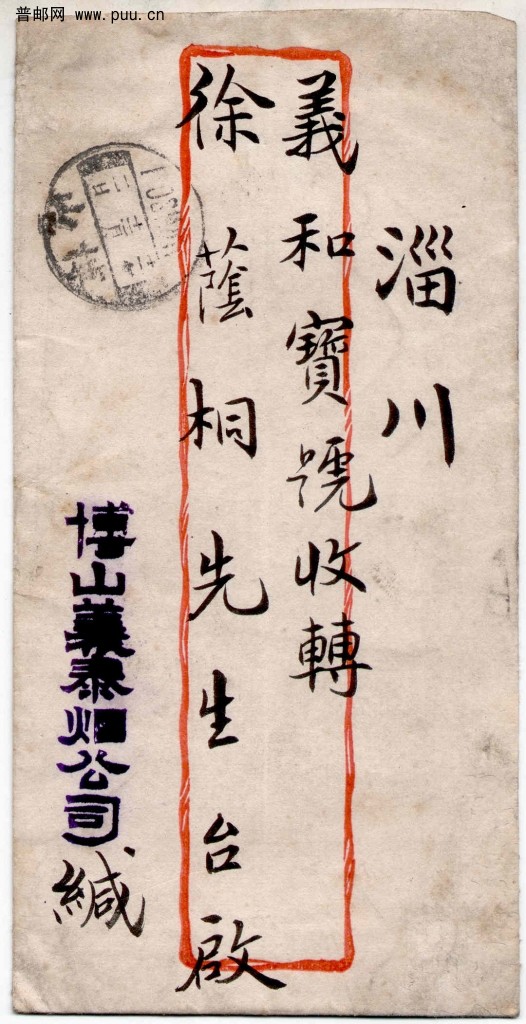 普邮网 www.puu.cn
淄川
義和寶號收轉
徐蔭桐先生台啟
博山義泰烟公司緘